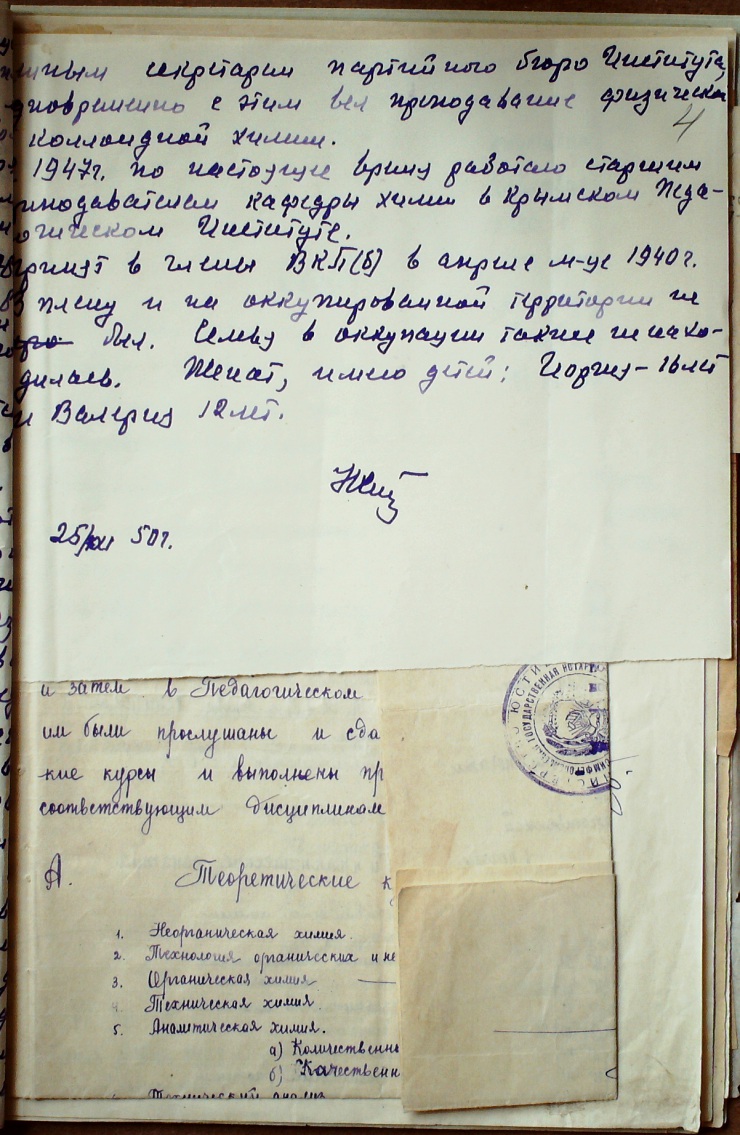 иным секретарем партийного бюро Института,
дновременно с этим вел преподавание физическо
коллоидной химии.
4
1947г. по настоящее время работаю старшим
еподавателем кафедры химии в Крымском Педа-
огическом Институте.
принят в члены ВКП(б) в апреле м-це 1940 г.
В плену и на оккупированной территории не
был. Семья в оккупации также не нахо-
дилась. Женат, имею детей: Иоризя - 16 лет
и Валерия 12 лет.
25/XII 50 г.
и затем в Педагогическом
им были прослушаны и сда
-кие курсы и выполнены пр
соответствующим дисциплинам
А. Теоретические к
1. Неорганическая химия.
2. Технология органических и не
3. Органическая химия —
4. Техническая химия
5. Аналитическая химия.
а) Количественн
б) Качественн
Технический анализ
ГОСУДАРСТВЕННАЯ НОТАР